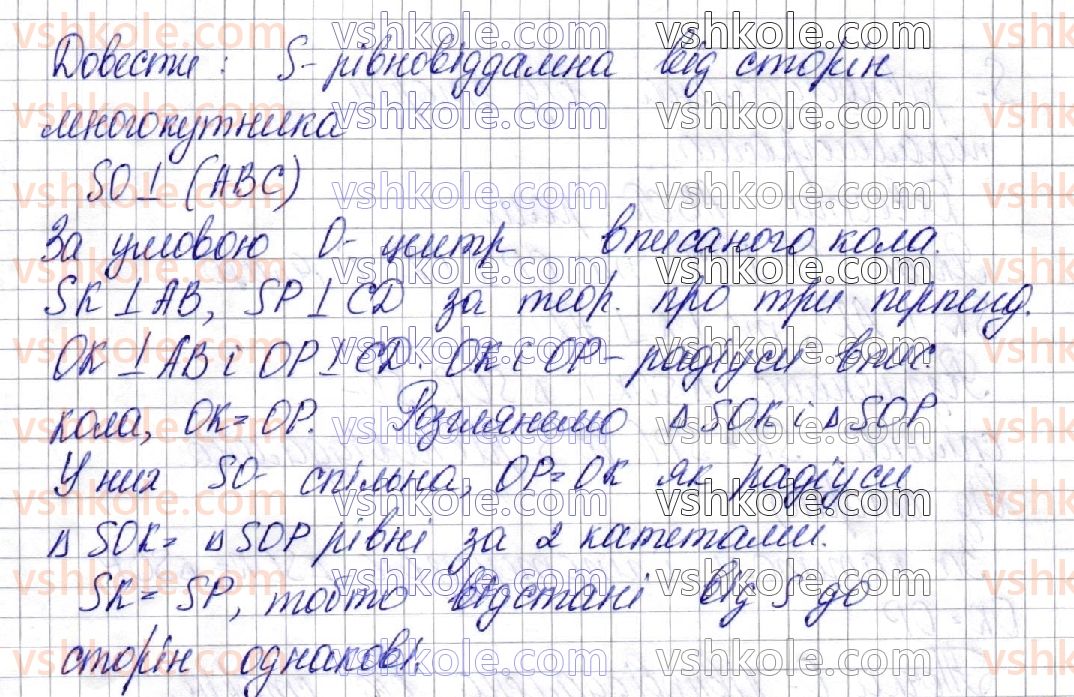 Довести: S- рівновіддалена від сторін
многокутника
SO⊥(ABC)
За умовою O- центр вписаного кола.
SK⊥AB, SP⊥CD за теор. про три перпенд.
OK⊥AB і OP⊥CD. OK і OP- радіуси впис.
кола, OK=OP. Розглянемо ΔSOK і ΔSOP
У них SO- спільна, OP=OK як радіуси
ΔSOK=ΔSOP рівні за 2 катетами.
SK=SP, тобто відстані від S до
сторін однакові.